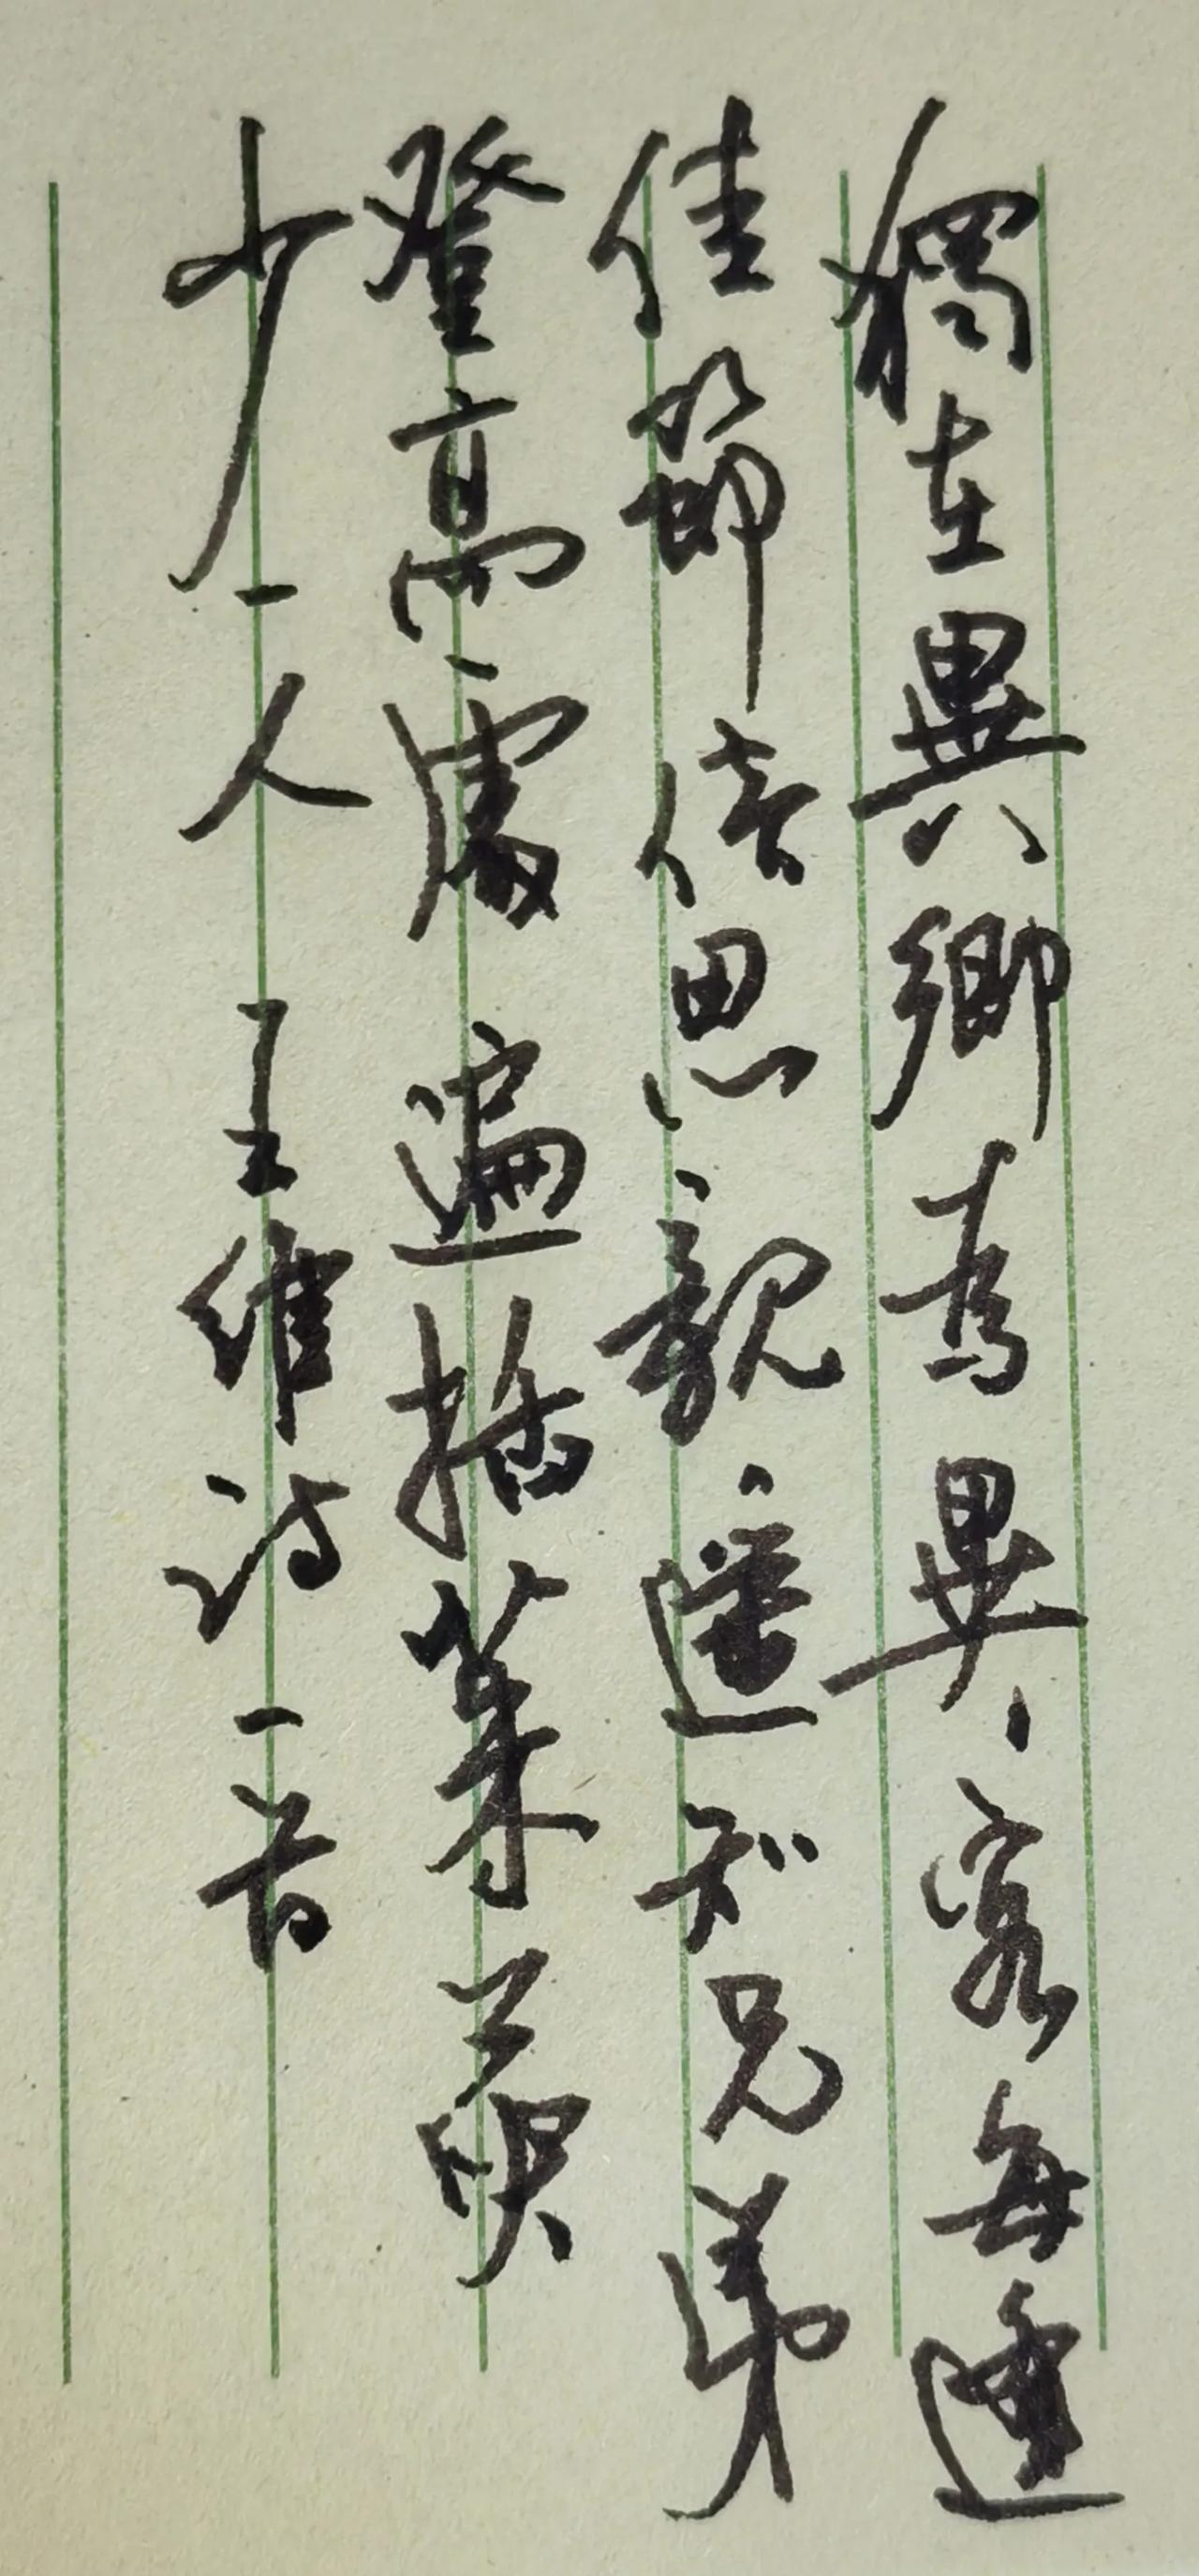 獨在異鄉為異客每逢
佳節倍思親遥知兄弟
登高處遍插茱萸
少一人 王維詩一首